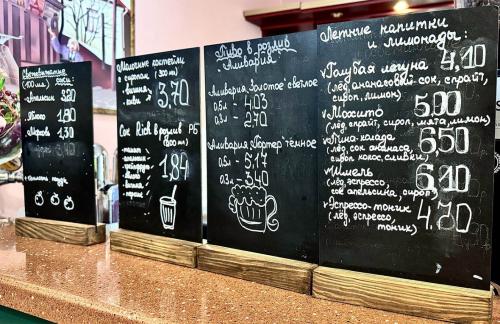 Свежевыжатые
соки:
(100 мл)
• Апельсин
• Яблоко 1.80
• Морковь 1.30
Молочные коктейли
с сиропом (300 мл)
• ваниль 3.70
Сок Rich в розлив РБ
1.84
Пиво в розлив
"Аливария
"Аливария Золотое" светлое
0.5л - 4.03
0.3л - 2.70
"Аливария Портер" тёмное
0.5л - 5.17
0.3л - 3.40
Летние напитки
и лимонады:
• Голубая лагуна 4.10
(лёд, ананасовый сок, спрайт,
сироп, лимон)
• Мохито 5.00
(лёд, спрайт, сироп, мята, лимон)
• Пина-колада 6.50
(лёд, сок ананаса,
сироп кокос, сливки)
• Шмель 6.10
(лёд, эспрессо,
сок апельсина, сироп)
• Эспрессо-тоник 4.70
(лёд, эспрессо,
тоник)